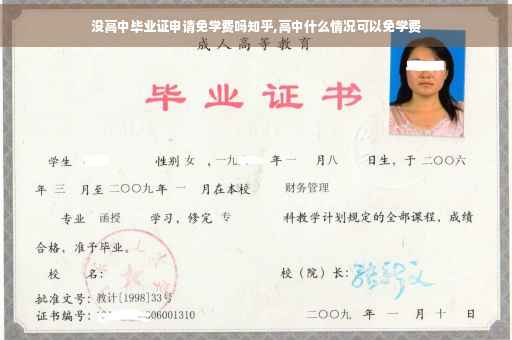 没高中毕业证申请免学费吗知乎,高中什么情况可以免学费
成人高等教育
毕业证书
学生 性别 女 ,一九 年一 月八 日生,于二〇〇六
年 三 月至二〇〇九年 一 月在本校 财务管理
专业 函授 学习,修完 专 科教学计划规定的全部课程,成绩
合格,准予毕业。
校 名: 校(院)长:
批准文号:教计[1998]33号
证书编号: 06001310 二〇〇九 年 一 月 十 日